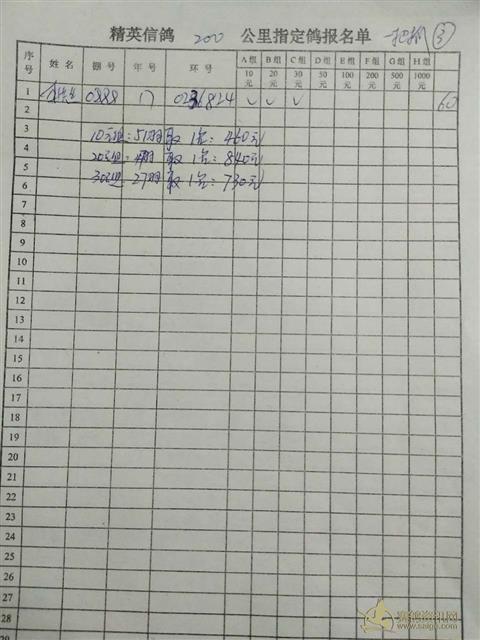 精英信鸽 200 公里指定鸽报名单 一把抓 ③
序号 姓名 棚号 年号 环号 A组 B组 C组 D组 E组 F组 G组 H组
10元 20元 30元 50元 100元 200元 500元 1000元
1 0888 17 0236824 ∨ ∨ ∨ 60
2
3 10元组:51羽取1名:460元
4 20元组: 羽取1名:840元
5 30元组:27羽取1名:730元
6
7
8
9
10
11
12
13
14
15
16
17
18
19
20
21
22
23
24
25
26
27
28
赛鸽资讯网
www.saigg.com